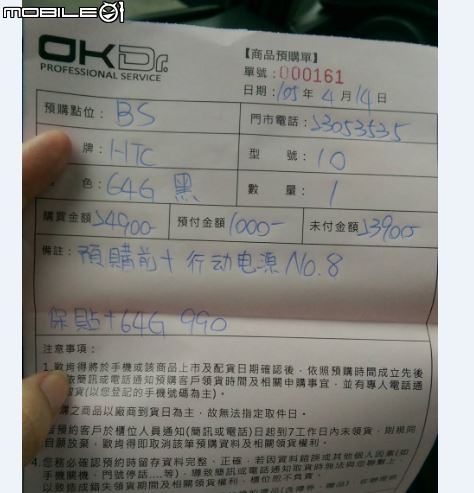 MOBILE01
OKDr.
PROFESSIONAL SERVICE
【商品預購單】
單號：000161
日期：105年4月14日
預購點位：BS
門市電話：23053535
牌：HTC
型號：10
色：64G 黑
數量：1
購買金額：24900
預付金額：1000-
未付金額：23900-
備註：預購前+行动电源No.8
保貼+64G 990
注意事項：
1.歐肯得將於手機或該商品上市及配貨日期確認後，依照預購時間成立先後
依簡訊或電話通知預購客戶領貨時間及相關申購事宜，並有專人電話通
(以您登記的手機號碼為主)
購之商品以廠商到貨日為主，故無法指定取件日。
預約客戶於櫃位人員通知(簡訊或電話)日起到7工作日內未領貨，則視同
自願放棄，歐肯得即取消該筆預購資料及相關領貨權利。
4.您務必確認預約時留存資料完整、正確，若因資料錯誤或其他個人因素(如
手機關機、門號停話....等)，導致簡訊或電話通知取貨時無法與您聯繫上，
以致造成錯失領貨期間及相關領貨權利，櫃位恕不負責。